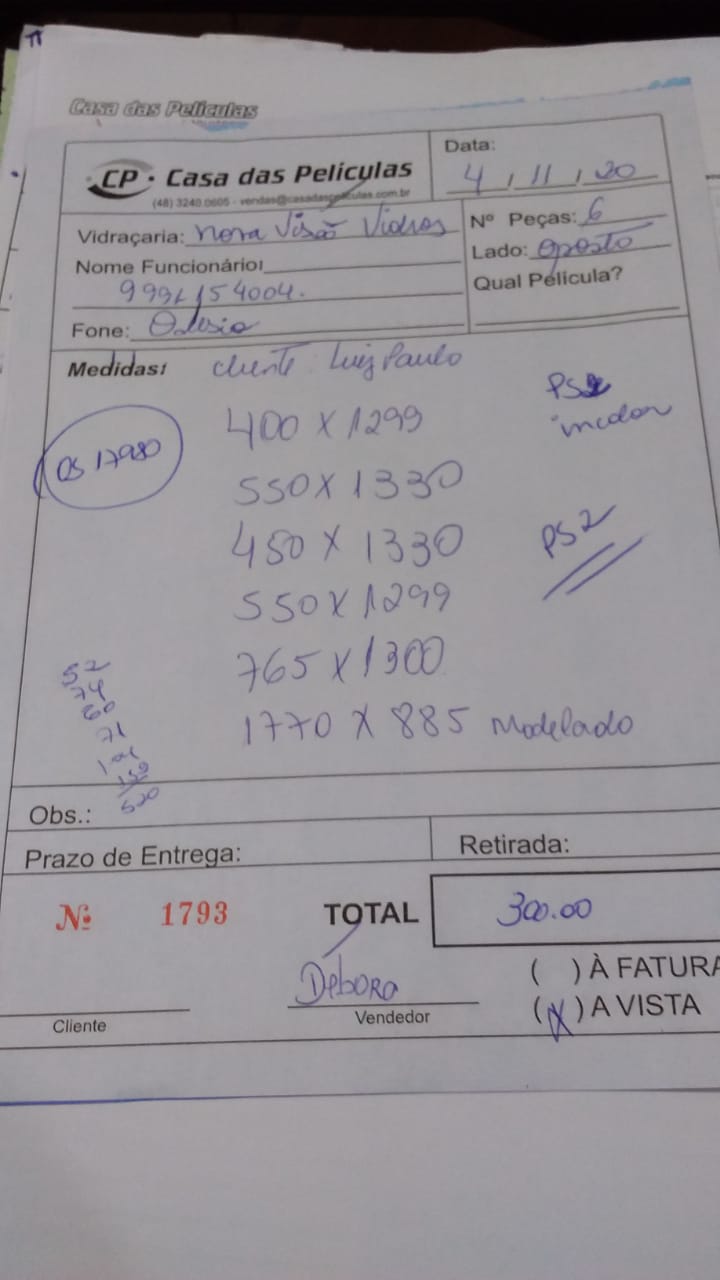 Casa das Películas
CP • Casa das Películas
(48) 3240.0605 - vendas@casadaspeliculas.com.br
Data: 4 / 11 / 20
Vidraçaria: Nova Visão Vidros
Nº Peças: 6
Nome Funcionário:
Lado: oposto
Qual Película?
Fone: Odesio
Medidas: cliente: Luiz Paulo
PS2
incolor
400 X 1299
OS 17980
550 X 1330
450 X 1330
PS2
550 X 1299
765 X 1300
1770 X 885 Modelado
52
74
60
71
520
Obs.:
Prazo de Entrega:
Retirada:
Nº 1793
TOTAL
300.00
( ) À FATURA
Débora
(X) A VISTA
Cliente
Vendedor